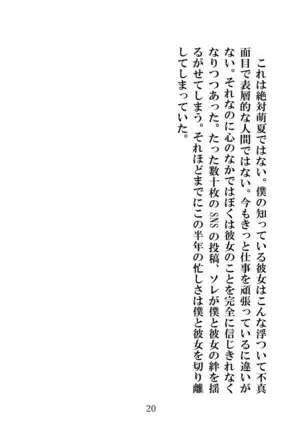 これは絶対萌夏ではない。僕の知っている彼女はこんな浮ついて不真
面目で表層的な人間ではない。今もきっと仕事を頑張っているに違いが
ない。それなのに心のなかではぼくは彼女のことを完全に信じきれなく
なりつつあった。たった数十枚のSNSの投稿、ソレが僕と彼女の絆を揺
るがせてしまう。それほどまでにこの半年の忙しさは僕と彼女を切り離
してしまっていた。
20